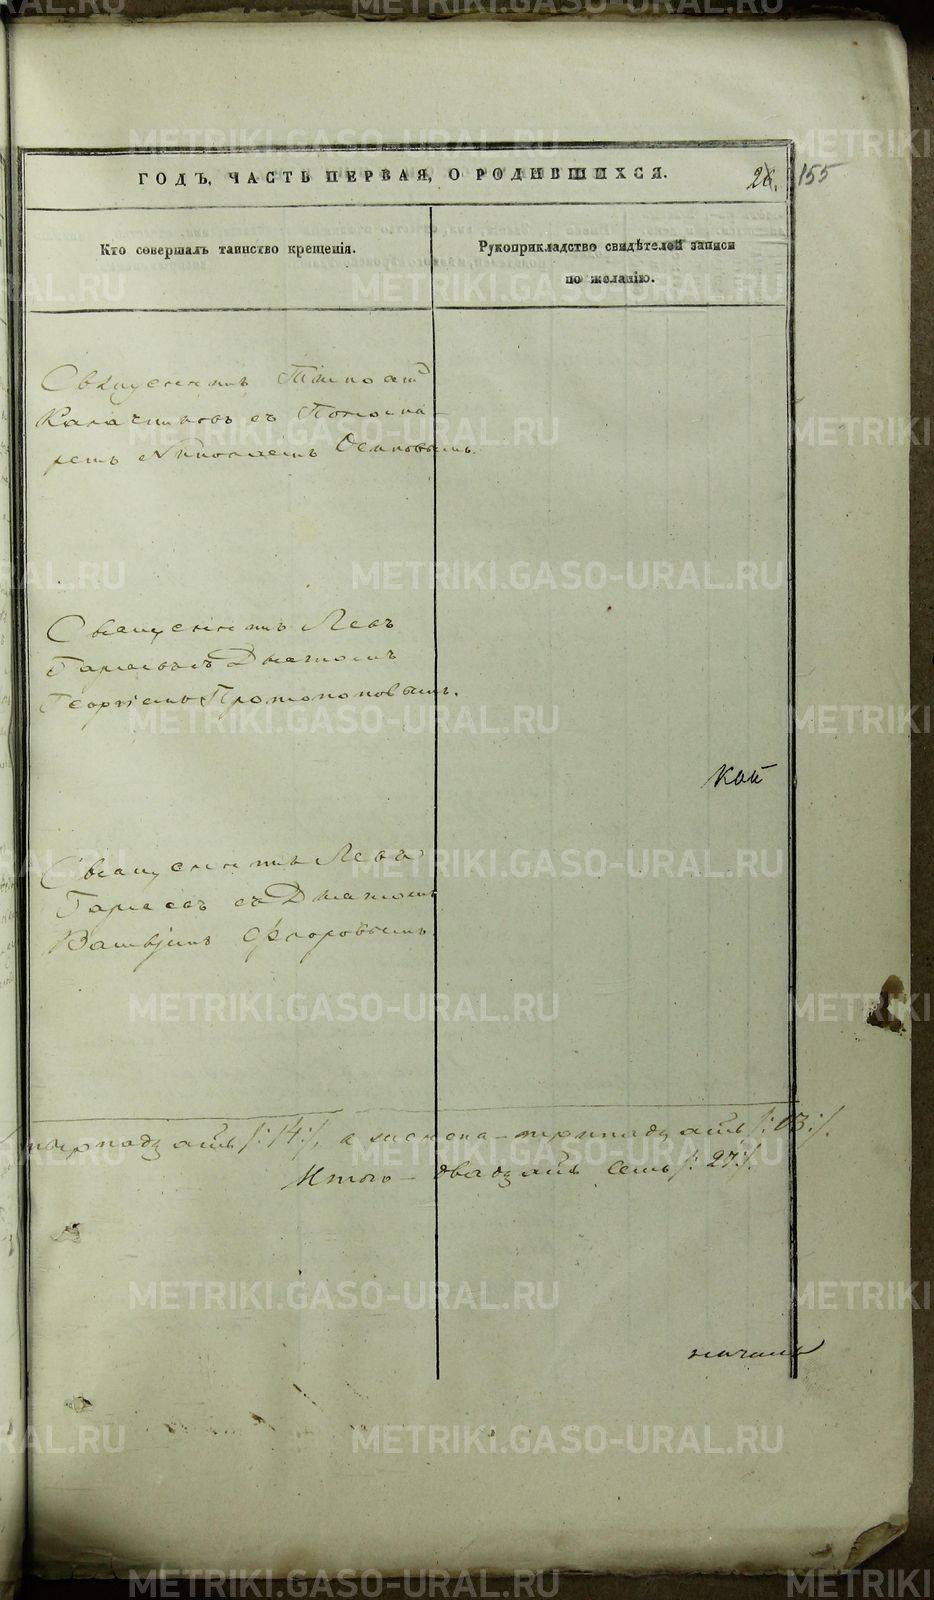 ГОДЪ, ЧАСТЬ ПЕРВАЯ, О РОДИВШИХСЯ.
26. 155
Кто совершалъ таинство крещенія.
Рукоприкладство свидѣтелей записи
по желанію.
Священникъ
Калачниковъ съ Понома-
ремъ Николаемъ Осиповымъ.
Священникъ Левъ
Діакономъ
Георгіемъ Протопоповымъ.
Священникъ Левъ
съ Діакономъ
Флоровымъ
/:14:/, а женска - тринадцать /:13:/.
Итого - двадцать семь /:27:/.
METRIKI.GASO-URAL.RU